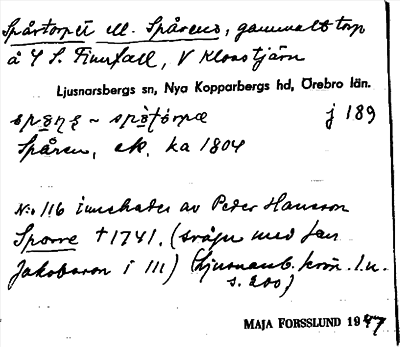 Spårtorpet ell. Spårens, gammalt torp
å Y S. Finnfall, V Klosstjärn
Ljusnarsbergs sn, Nya Kopparbergs hd, Örebro län.
j 189
Spåren, ek. ka 1804
N:o 116 innehades av Peder Hansson
Sporre † 1741. (svåger med Jan
Jakobsson i 111) (Ljusnarsb. krön. l.u.
s. 200)
MAJA FORSSLUND 1947